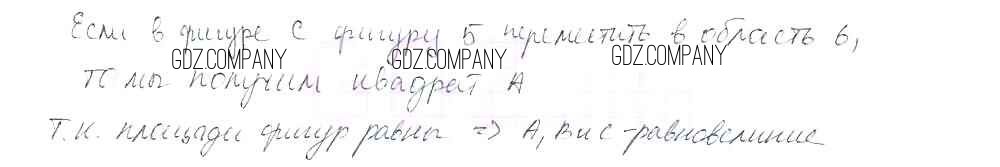 Если в фигуре С фигуру 5 переместить в область 6,
GDZ.COMPANY GDZ.COMPANY GDZ.COMPANY
то мы получим квадрат А
Т.к. площади фигур равны => А, В и С - равновеликие